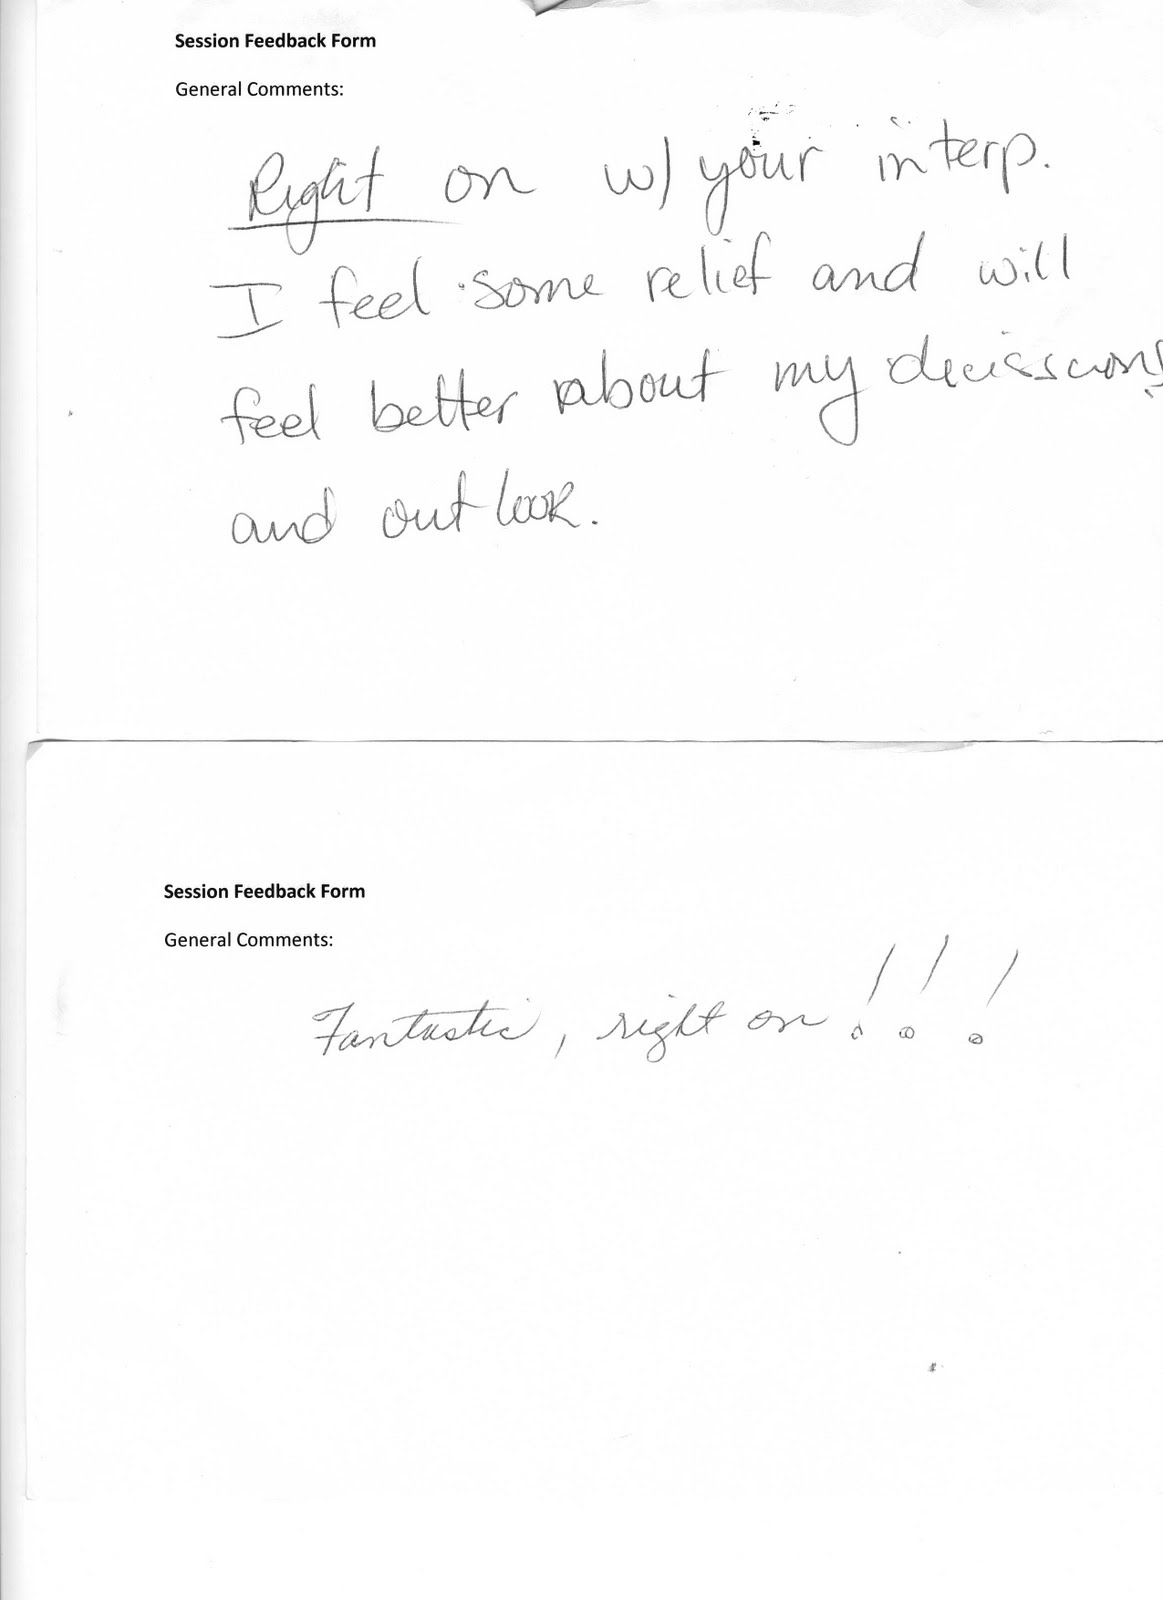 Session Feedback Form
General Comments:
Right on w/ your interp.
I feel some relief and will
feel better about my decisscions
and out look.
Session Feedback Form
General Comments:
Fantastic, right on!!!